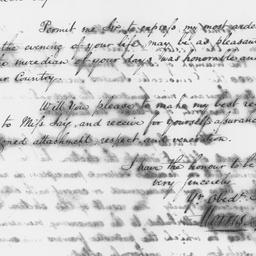 Permit me Sir, to express my most arde
the evening of your life, may be as pleasan
he meredian of your days was honorable an
ur Country.
Will You please to make my best re
to Miss Jay, and receive for yourself assuranc
igned attachment, respect, and veneration.
I have the honour to be
very sincerely
Yr. Obedt. S